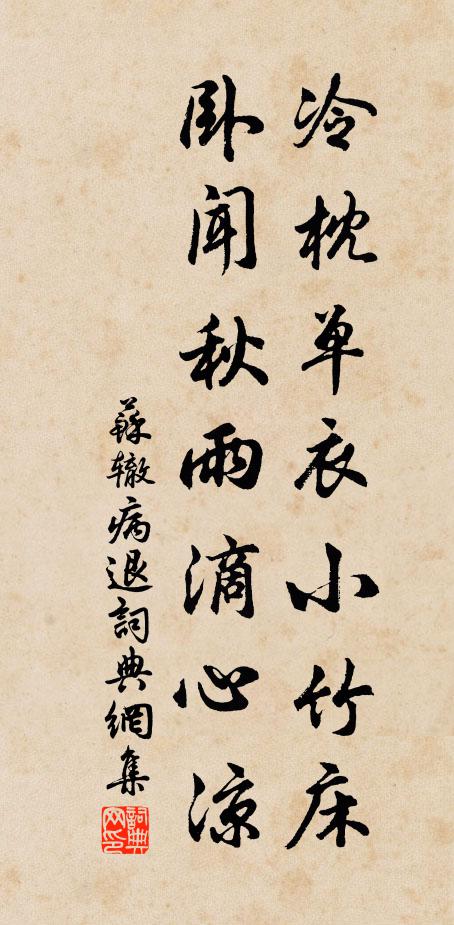 冷枕单衣小竹床
卧闻秋雨滴心涼
蘇辙病退詞典網集
詞典网印